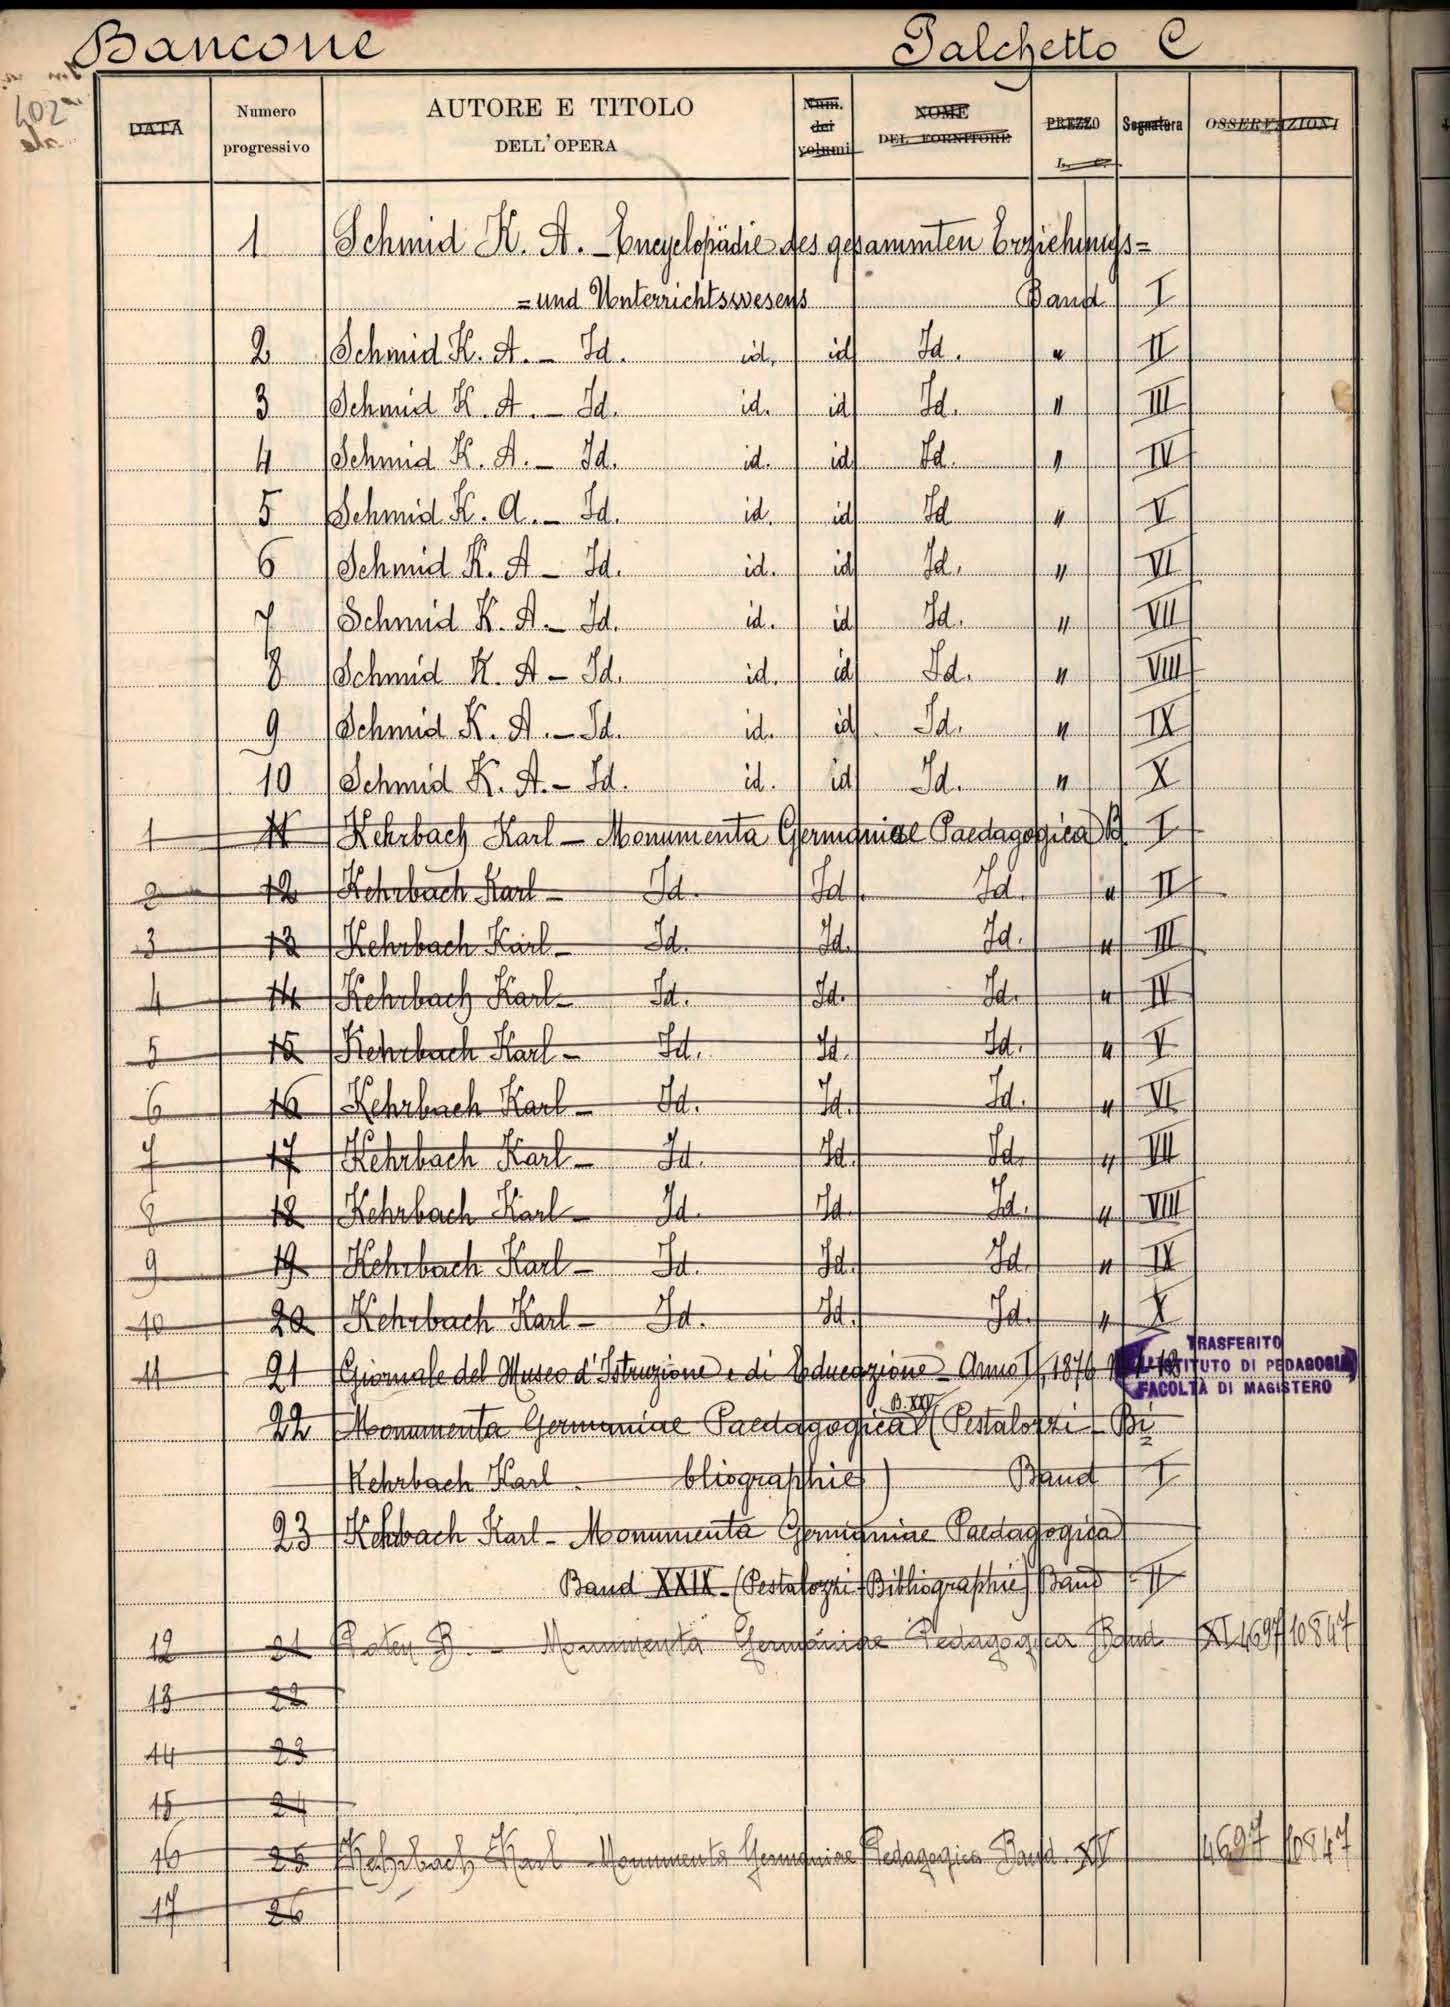 Bancone Palchetto C
DATA Numero progressivo AUTORE E TITOLO DELL'OPERA Num. dei volumi NOME DEL FORNITORE PREZZO L. C. Segnatura OSSERVAZIONI
1 Schmid K. A. - Encyclopädie des gesammten Erziehungs=
=und Unterrichtswesens Band I
2 Schmid K. A. - Id. id. id Id. " II
3 Schmid K. A. - Id. id. id Id. " III
4 Schmid K. A. - Id. id. id Id. " IV
5 Schmid K. A. - Id. id. id Id " V
6 Schmid K. A - Id. id. id Id. " VI
7 Schmid K. A. - Id. id. id Id. " VII
8 Schmid K. A - Id. id. id Id. " VIII
9 Schmid K. A. - Id. id. id Id. " IX
10 Schmid K. A. - Id. id. id Id. " X
1 11 Kehrbach Karl - Monumenta Germaniae Paedagogica B. I
2 12 Kehrbach Karl - Id. Id. Id. " II
3 13 Kehrbach Karl - Id. Id. Id. " III
4 14 Kehrbach Karl - Id. Id. Id. " IV
5 15 Kehrbach Karl - Id. Id. Id. " V
6 16 Kehrbach Karl - Id. Id. Id. " VI
7 17 Kehrbach Karl - Id. Id. Id. " VII
8 18 Kehrbach Karl - Id. Id. Id. " VIII
9 19 Kehrbach Karl - Id. Id. Id. " IX
10 20 Kehrbach Karl - Id. Id. Id. " X
TRASFERITO
ISTITUTO DI PEDAGOGIA
FACOLTÀ DI MAGISTERO
11 21 Giornale del Museo d'Istruzione e di Educazione - Anno I, 1876
B. XXV
22 Monumenta Germaniae Paedagogica (Pestalozzi - Bi=
Kehrbach Karl. bliographie) Band I
23 Kehrbach Karl - Monumenta Germaniae Paedagogica
Band XXIX - (Pestalozzi-Bibliographie) Band II
12 21 Poten B. - Monumenta Germaniae Pedagogica Band XI 4697 10847
13 22
14 23
15 24
16 25 Kehrbach Karl - Monumenta Germaniae Pedagogica Band. XV 4697 10847
17 26